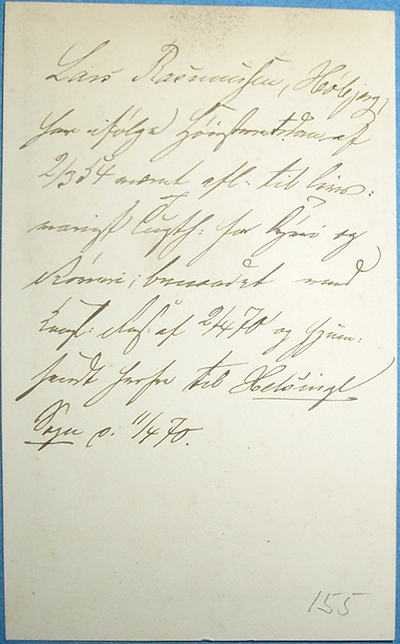 Lars Rasmussen, Höbjerg,
har ifølge Høiesteretsdom af
2/3 54 været afl: til livs:
varigt Tugth: for Tyveri og
Röveri; benaadet med
Kongl: Res: af 2/4 70 og hjem:
sendt herfra til Helsinge
Sogn d. 11/4 70.
155